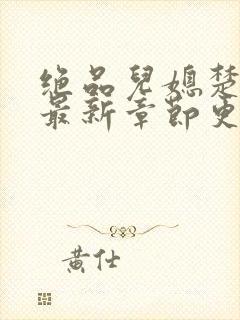 绝品儿媳楚
最新章节史
黄仕